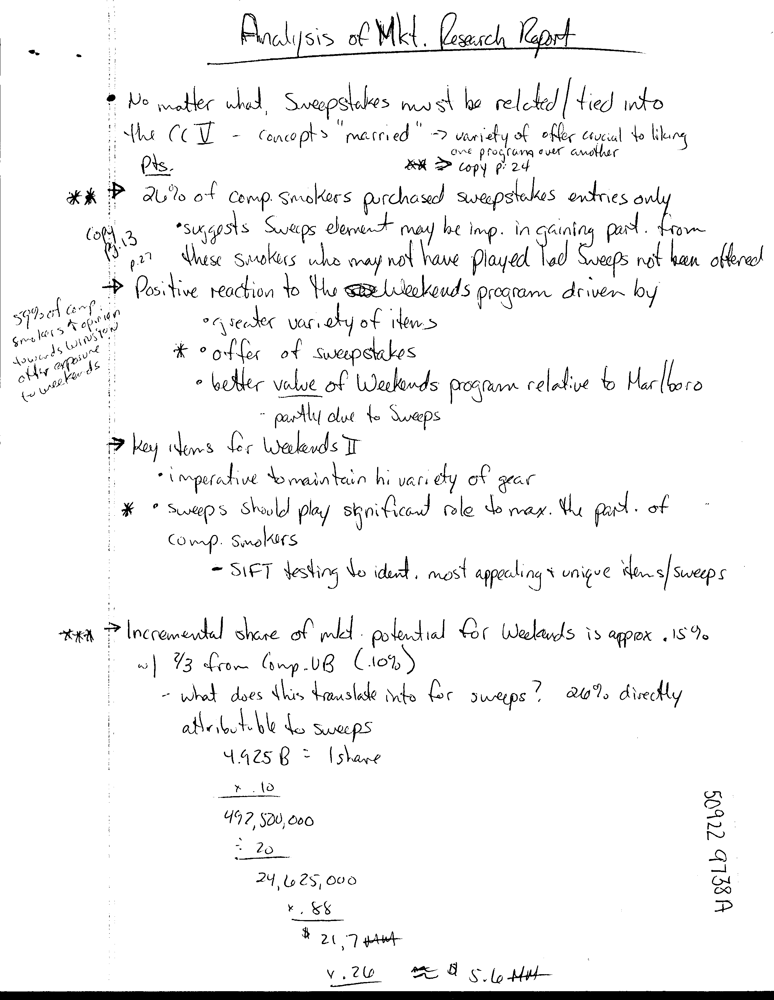 Analysis of Mkt. Research Report
• No matter what, Sweepstakes must be related/tied into
the CC V - concepts "married" -> variety of offer crucial to liking
one program over another
Pts.
** => copy p. 24
** -> 26% of comp. smokers purchased sweepstakes entries only
copy pg. 13
p. 27
• suggests Sweeps element may be imp. in gaining part. from
these smokers who may not have played had Sweeps not been offered
-> Positive reaction to the Weekends program driven by
59% of comp.
smokers ↑ opinion
towards Winston
after exposure
to weekends
• greater variety of items
* • offer of sweepstakes
• better value of Weekends program relative to Marlboro
- partly due to Sweeps
-> Key items for Weekends II
• imperative to maintain hi variety of gear
* • sweeps should play significant role to max. the part. of
comp. smokers
- SIFT testing to ident. most appealing & unique items/sweeps
*** -> Incremental share of mkt. potential for Weekends is approx .15%
w/ 2/3 from Comp. UB (.10%)
- what does this translate into for sweeps? 26% directly
attributable to sweeps
4.925 B = 1 share
x .10
492,500,000
÷ 20
24,625,000
x .88
$ 21,7 MM
x .26 ≈ $ 5.6 MM
50922 9738A